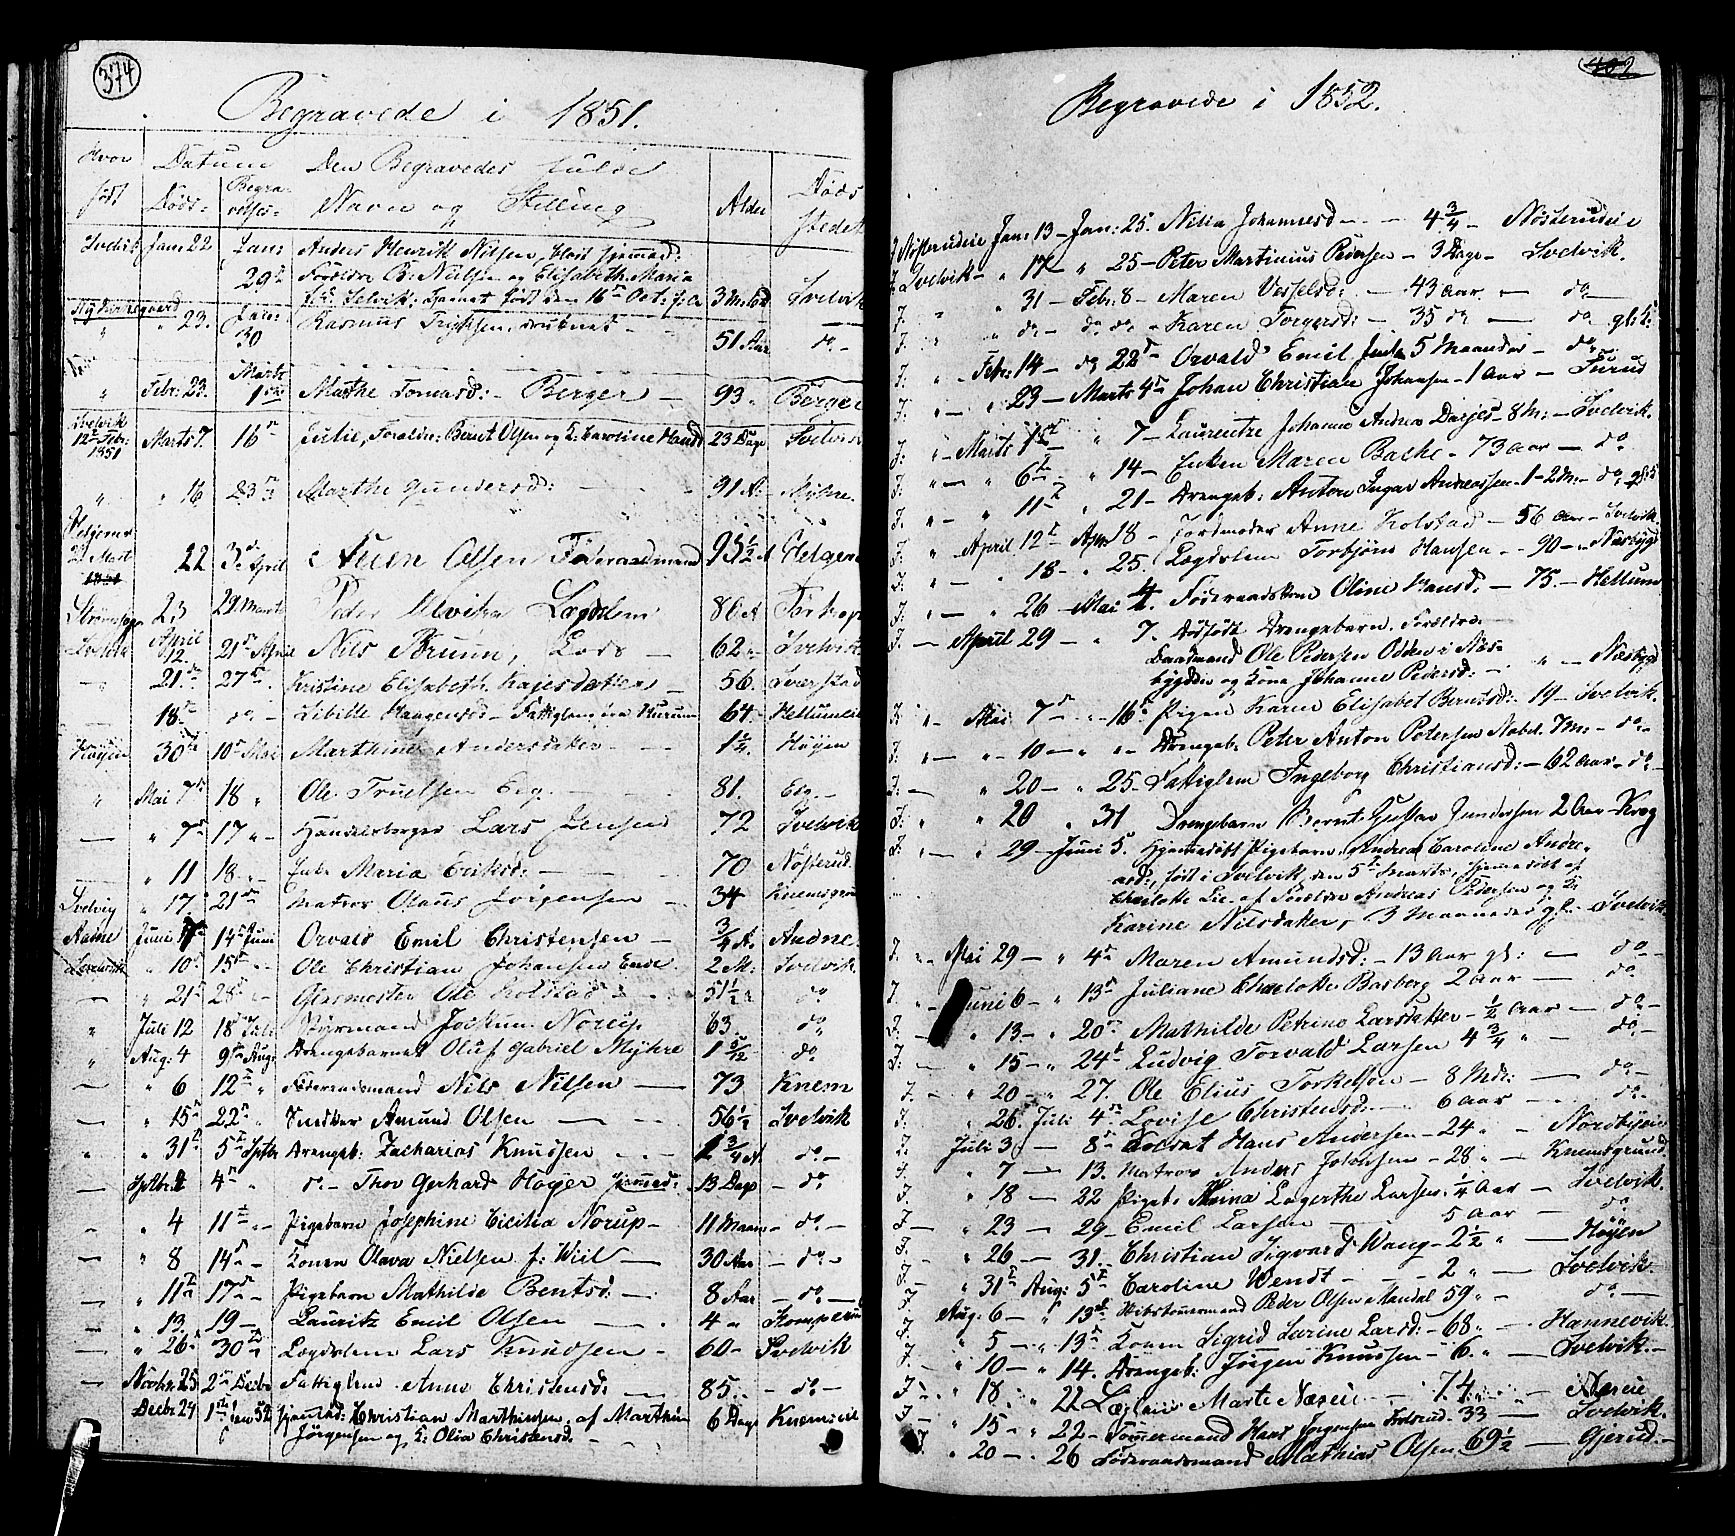 374
Begravede i 1851.
Hvor født
Datum
Døds:
Begravelses:
Den Begravedes fulde
Navn og Stilling
Alder
Døds
stedet
Svelvik Jan: 22 Jan: 29 Anders Henrik Nilsen,
Forældre B: Nielsen og Elisabeth Maria
født den 16 Oct: 3 M: Svelvik
" 23. Jan: 30 Rasmus 51 Aar do -
" Febr: 23. Marts 1 Marthe Tomasd: - Berger - 93 " Berger
Svelvik 12 Febr: 1851 Marts 7. 16 Julie, Foreldre: Bernt Olsen og K: Karoline Hansd 23 Dage Svelvik
" " 16 23 Marthe Gundersd: - 91 A: Myhre
22 3 April Olsen Føderaadsmand 95½ A
23 29 Marts Peder Lægdslem 86 A
April 12 21 April Nils Bruun, Lods - 62 " Svelvik
- 21 27 Kristine Elisabeth - 56. Sverstad
- 18 do - Sibille Haagensd - Fattiglem fra Hurum 64 -
Høyen 30 10 Mai Marthine Andersdatter - 1¼ Høyen
" Mai 7 18 " Ole Truelsen Eeg - 81. Eeg -
- " 7 17 " Handelsborger Lars Jensen 72 Svelvik
" 11 18. Enke Maria Eriksd: - 70 Nøsterud
Svelvig " 17 21 Matros Olaus Jørgensen - 34
Juni 14 Juni Orvald Emil Christensen - ¾ A.
" 10 15 - Ole Christian Johansen 2 M: Svelvik.
- " 21 28 " Ole Kolstad 51½ do
" Juli 12 18 Juli Norup. 63. do
" Aug: 4 9 Aug: Drengebarnet Oluf Gabriel Myhre 1 5/12 do
- " 6 12 " Føderaadsmand Nils Nilsen - 73 Knem
- " 15 22 Snedker Amund Olsen - 56½ Svelvik
" " 31 5 Sptbr Drengeb: Zacharias Knudsen - ¾ A. do -
- Sptbr: 4 " do - Thor Gerhard Høyer 13 Dage - do -
- " 4 11 - Pigebarn Josephine Cicilia Norup - 11 Maan - do -
- " 8 14 - Konen Olava Nielsen f: Wiil - 30 Aar - do -
- " 11 17 - Pigebarn Mathilde Bentsd: - 8 Aar - do -
- " 13 19 - Lauritz Emil Olsen - 4 "
- " 26 30 Lægdslem Lars Knudsen - 60 - Svelvik
- Novbr: 25 2 Decbr Fattiglem Anne Christensd: 85. - do -
- Decbr 24 1 Jan 52 Christian Marthinsen, af Marthin 6 Dage
Jørgensen og K: Olia Christensd.
402
Begravede i 1852.
Nøsterudeie Jan: 13 - Jan: 25. Nilia Johannesd - - 4¾ - Nøsterudeie
Svelvik - " 17 - " 25 - Peter Martinius Pedersen - 3 Dage - Svelvik.
" 31 - Febr: 8 - Maren - 43 Aar - do -
" do - do do - Karen Torgersd: - 35 do - do
" Febr: 14 - do 22 - Orvald Emil 5 Maaneder - do
" - " 29 - Marts 4 Johan Christian Johansen - 1 Aar -
" - Marts 1 " 7 - Laurentze Johanne Andrea 8 M: - Svelvik.
" - " 6 " 14 - Enken Maren Bache - 73 aar - do
" - " 11 " 21 - Drengeb: Anton Andreassen - 1 - 2 M: - do
" April 12 Apr 18 - Jordmoder Anne Kolstad - 56 aar - Svelvik.
" - " 18 - " 25. Lægdslem Torbjørn Hansen - - 90 - " Næsbygd
" - " 26 - Mai 4. Føderaadskone Oline Hansd: - 75 - Hellum
- April 29 - " 7. Dødfødt Drengebarn. Forældre
Baadsmand Ole Pedersen Odden i Næs-
bygden og Kone Johanne Pedersd: - " - Næsbygd
" Mai 7 - " 16 Pigen Karen Elisabet Berntsd: - 19 - Svelvik.
" - " 10 - " " - Drengeb: Peter Anton Petersen Nøbel. 7 M: - do -
" 20 - " 25. Fattiglem Ingeborg Christiansd: - 62 Aar - do -
" 20 " 31 Drengebarn Bernt Gustav Gundersen 2 Aar - Krog
" " 29 - Juni 5. Hjemmedøbt Pigebarn Andrea Caroline Andre-
asd:, født i Svelvik den 5 Marts, hjemmedøbt af
Charlotte Lie. af Forældre Andreas Pedersen og K:
Karine Nilsdatter, 3 Maaneder gl. - Svelvik
Mai 29 - " 4 Maren Amundsd: - 13 Aar gl: - do
Juni 6 - " 13 Juliane Charlotte Basberg 2 aar - do
" 13 - " 20 Mathilde Petrine Larsdatter - ½ Aar - do -
" 15 - " 24 Ludvig Torvald Larsen 4¾ " - do -
" 20 - " 27. Ole Elius Torkelsen - 8 Mdr: - do -
" 26. Juli 4 Lovise Christensd: - 6 aar - do -
Juli 3 - " 8 Soldat Hans Andersen - 24 "
" 7 - " 13. Matros Anders Johansen - 28 " - Knemsgrund
" 18 - 22 Pigeb: Lagerthe Larsen. ¼ Aar - Svelvik.
" 23 - 29 Emil Larsen - 5 Aar - do
" 26 - 31. Christian Sigvard Wang - 2½ " - Høyen
" 31 Aug: 5 Caroline Wendt - - 2 " - Svelvik.
Aug: 6 - " 13 Skibstømmermand Peder Olsen Mandal 59 " - do -
" 5 - " 13 Konen Sigrid Serine Larsd: - 68 " - Hannevik.
" 10 - " 14. Drengeb: Jørgen Knudsen - 6 " - Svelvik. -
" 18 " 22 Marte Næseie - 74 " - Næseie
" 15 - " 22 - Tømmermand Hans Jørgensen 33 - Svelvik.
" 20 - " 26 Føderaadsmand Mathias Olsen. 69½ - Gjerud. -